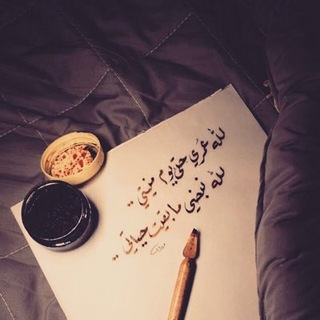 لله عمري حتى يوم ميتتي
لله نبضي ما بقيت حياتي